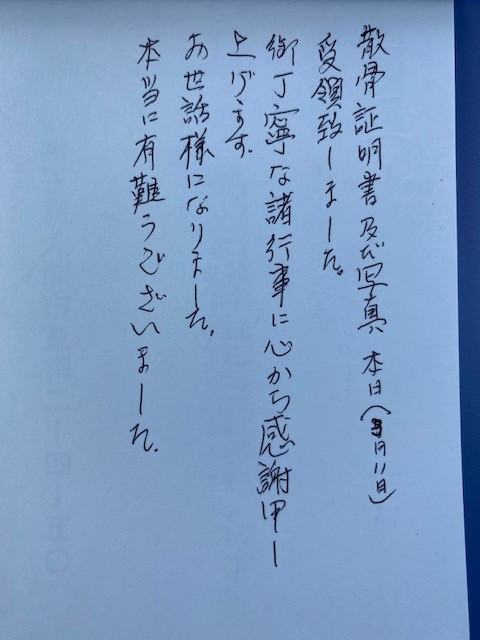 散骨証明書及び写真 本日(3月11日)
受領致しました。
御丁寧な諸行事に心から感謝申し
上げます。
お世話様になりました。
本当に有難うございました。